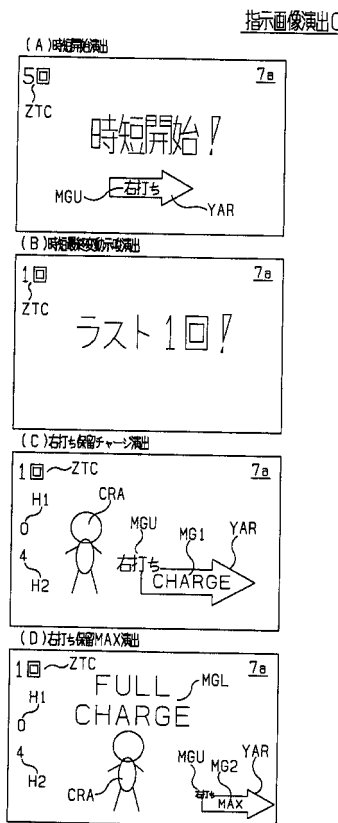 指示画像演出C
(A)時短開始演出
5回
7a
ZTC
時短開始!
右打ち
MGU
YAR
(B)時短最終変動示唆演出
1回
7a
ZTC
ラスト1回!
(C)右打ち保留チャージ演出
1回
ZTC
7a
H1
CRA
0
MGU
MG1
YAR
右打ち
CHARGE
4
H2
(D)右打ち保留MAX演出
1回
ZTC
7a
H1
FULL
CHARGE
MGL
0
4
H2
CRA
MGU
MG2
YAR
右打ち
MAX